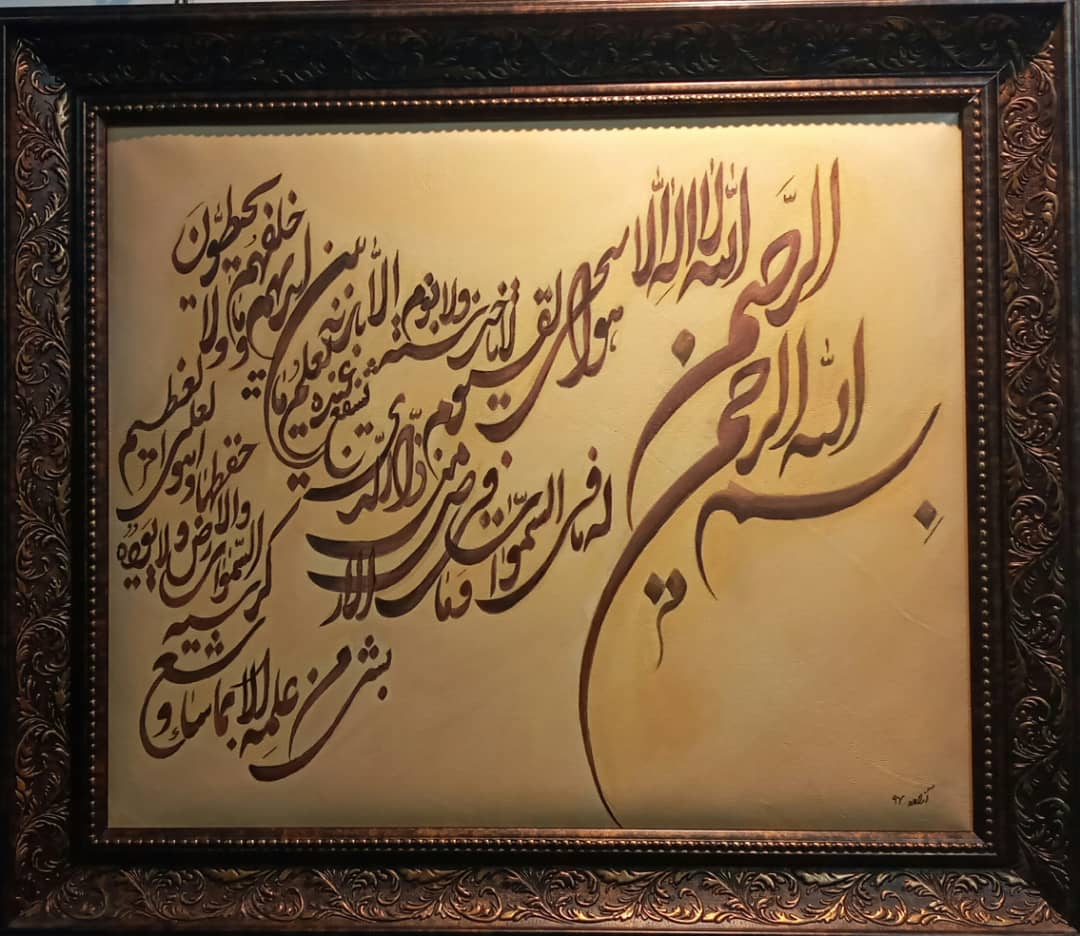 بسم
الله الرحمن
الرحیم
الله لا اله الا
هو الحی
القیوم
لا تاخذه سنة ولا نوم
له ما فی السموات
وما فی الارض
من ذا الذی
یشفع عنده
الا باذنه یعلم ما
بین ایدیهم وما
خلفهم
ولا یحیطون
بشئ من
علمه الا بما شاء و
سع
کرسیه
السموات
والارض ولا یؤده
حفظهما وهو
العلی
العظیم
۹۷